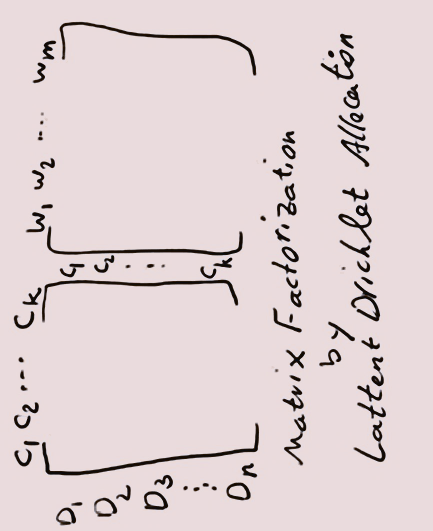 C1 C2 ... Ck
D1
D2
D3
⋮
Dn
W1 W2 ... Wm
C1
C2
⋮
Ck
Matrix Factorization
by
Lattent Drichlet Allocation